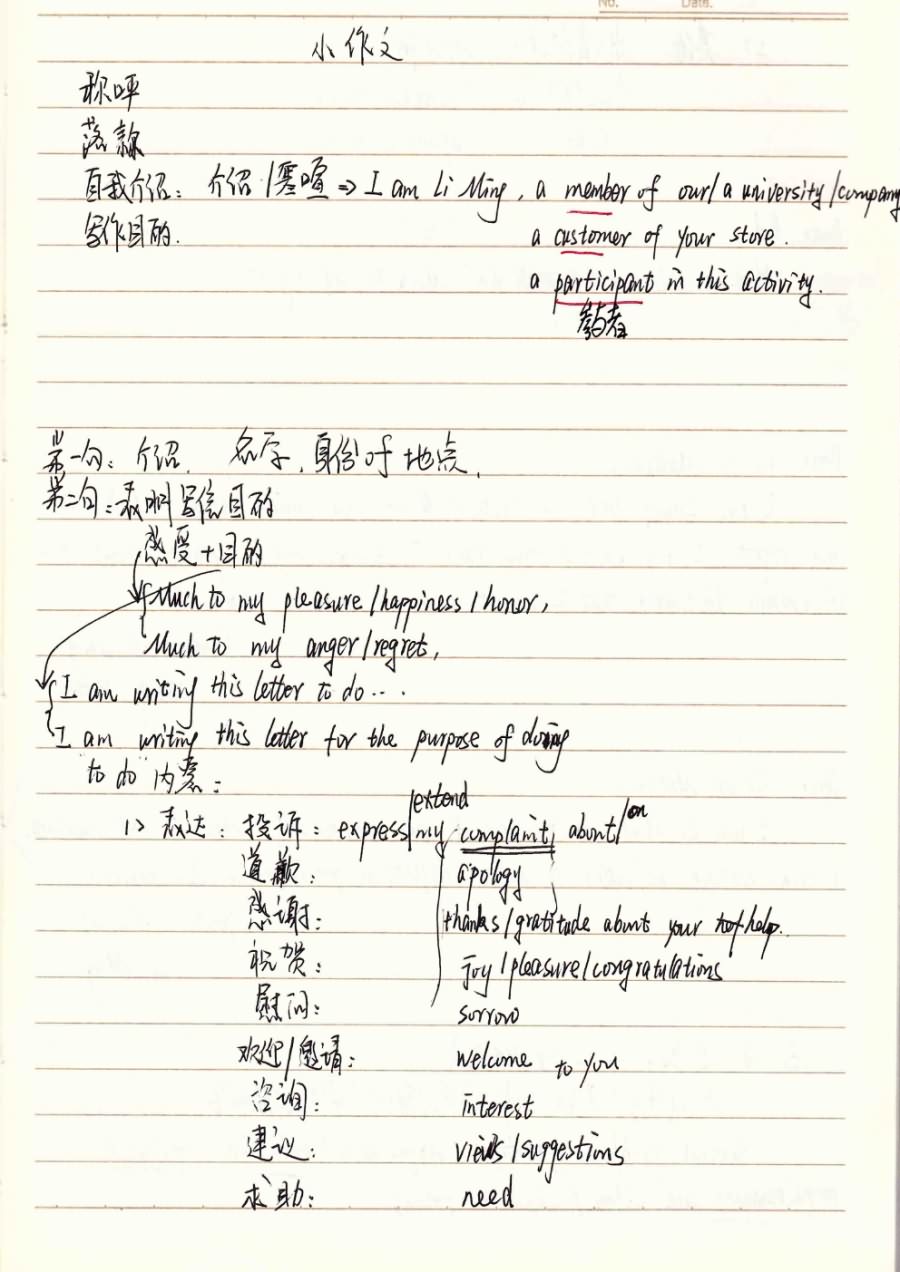 No. Date.
小作文
称呼
落款
自我介绍: 介绍/寒喧 ⇒ I am Li Ming, a member of our/a university/company
写作目的. a customer of your store.
a participant in this activity.
参与者
第一句: 介绍. 名字, 身份 of 地点.
第二句: 表明写信目的
感受+目的
Much to my pleasure/happiness/honor,
Much to my anger/regret,
I am writing this letter to do...
I am writing this letter for the purpose of doing
to do 内容:
/extend
1> 表达: 投诉: express/my complaint, about/on
道歉: apology
感谢: thanks/gratitude about your help.
祝贺: joy/pleasure/congratulations
慰问: sorrow
欢迎/邀请: welcome to you
咨询: interest
建议: views/suggestions
求助: need